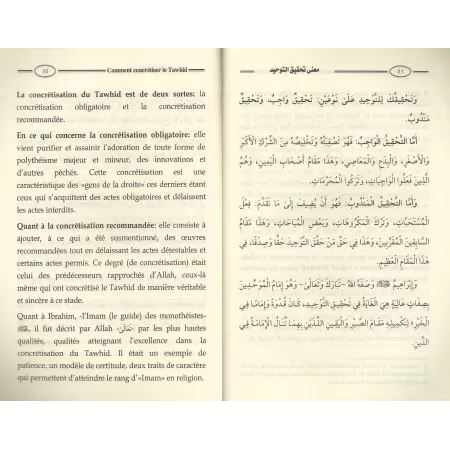 22
Comment concrétiser le Tawhid
La concrétisation du Tawhid est de deux sortes: la
concrétisation obligatoire et la concrétisation
recommandée.
En ce qui concerne la concrétisation obligatoire: elle
vient purifier et assainir l'adoration de toute forme de
polythéisme majeur et mineur, des innovations et
d'autres péchés. Cette concrétisation est une
caractéristique des «gens de la droite» ces derniers étant
ceux qui s'acquittent des actes obligatoires et délaissent
les actes interdits.
Quant à la concrétisation recommandée: elle consiste à
ajouter, à ce qui a été susmentionné, des œuvres
recommandées tout en délaissant les actes détestables et
certains actes permis. Ce degré (de concrétisation) était
celui des prédécesseurs rapprochés d'Allah, ceux-là
même qui ont concrétisé le Tawhid de manière véritable
et sincère à ce stade.
Quant à Ibrahim, -l'Imam (le guide) des monothéistes-
ﷺ, il fut décrit par Allah -تعالى- par les plus hautes
qualités, qualités atteignant l'excellence dans la
concrétisation du Tawhid. Il était un exemple de
patience, un modèle de certitude, deux traits de caractère
qui permettent d'atteindre le rang d'«Imam» en religion.
معنى تحقيق التوحيد
21
وَتَحْقِيقُكَ لِلتَّوْحِيدِ عَلَىٰ نَوْعَيْنِ: تَحْقِيقٌ وَاجِبٌ، وَتَحْقِيقٌ
مَنْدُوبٌ.
أَمَّا التَّحْقِيقُ الْوَاجِبُ: فَهُوَ تَصْفِيَتُهُ وَتَخْلِيصُهُ مِنَ الشِّرْكِ الْأَكْبَرِ
وَالْأَصْغَرِ، وَالْبِدَعِ وَالْمَعَاصِي، وَهَذَا مَقَامُ أَصْحَابِ الْيَمِينِ، وَهُمُ
الَّذِينَ فَعَلُوا الْوَاجِبَاتِ، وَتَرَكُوا الْمُحَرَّمَاتِ.
وَأَمَّا التَّحْقِيقُ الْمَنْدُوبُ: فَهُوَ أَنْ يُضِيفَ إِلَى مَا تَقَدَّمَ: فِعْلَ
الْمُسْتَحَبَّاتِ، وَتَرْكَ الْمَكْرُوهَاتِ، وَبَعْضِ الْمُبَاحَاتِ، وَهَذَا مَقَامُ
السَّابِقِينَ الْمُقَرَّبِينَ، وَهَذَا فِي حَقِّ مَنْ حَقَّقَ التَّوْحِيدَ حَقًّا وَصِدْقًا، فِي
هَذَا الْمَقَامِ الْعَظِيمِ.
وَإِبْرَاهِيمُ ﷺ وَصَفَهُ اللهُ -تَبَارَكَ وَتَعَالَى- وَهُوَ إِمَامُ الْمُوَحِّدِينَ
بِصِفَاتٍ عَالِيَةٍ هِيَ الْغَايَةُ فِي تَحْقِيقِ التَّوْحِيدِ، كَانَ قُدْوَةً وَإِمَامًا فِي
الْخَيْرِ؛ لِتَكْمِيلِهِ مَقَامَ الصَّبْرِ وَالْيَقِينِ اللَّذَيْنِ بِهِمَا تُنَالُ الْإِمَامَةُ فِي
الدِّينِ.